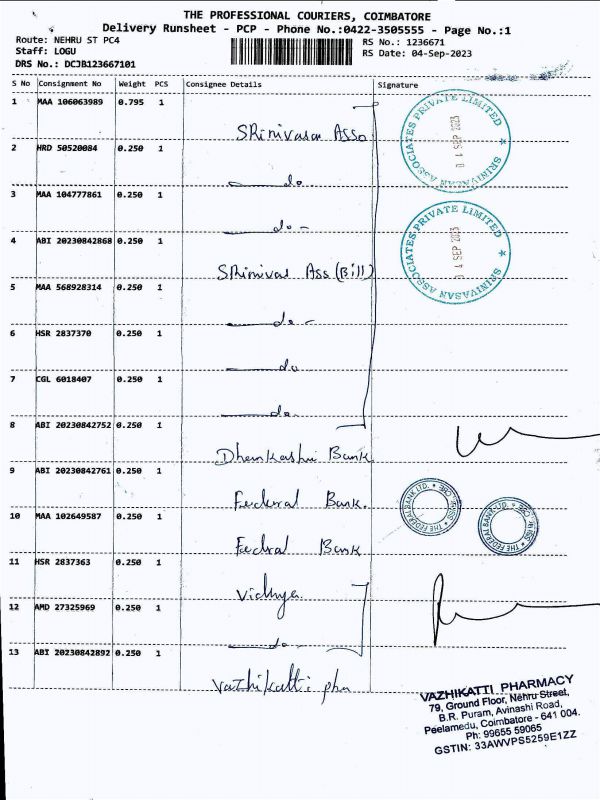 THE PROFESSIONAL COURIERS, COIMBATORE
Delivery Runsheet - PCP - Phone No.:0422-3505555 - Page No.:1
Route: NEHRU ST PC4
RS No.: 1236671
Staff: LOGU
RS Date: 04-Sep-2023
DRS No.: DCJB123667101
S No Consignment No Weight PCS Consignee Details Signature
1 MAA 106063989 0.795 1
SRinivasan Asso
2 HRD 50520084 0.250 1
do
3 MAA 104777861 0.250 1
do
4 ABI 20230842868 0.250 1
SRinivas Ass (Bill)
5 MAA 568928314 0.250 1
do
6 HSR 2837370 0.250 1
do
7 CGL 6018407 0.250 1
do
8 ABI 20230842752 0.250 1
Bank
9 ABI 20230842761 0.250 1
Federal Bank.
10 MAA 102649587 0.250 1
Fedral Bank
11 HSR 2837363 0.250 1
Vidhya
12 AMD 27325969 0.250 1
do
13 ABI 20230842892 0.250 1
Vazhikatti pha
SRINIVASAN ASSOCIATES PRIVATE LIMITED
04 SEP 2023
SRINIVASAN ASSOCIATES PRIVATE LIMITED
04 SEP 2023
THE FEDERAL BANK LTD.
THE FEDERAL BANK LTD.
VAZHIKATTI PHARMACY
79, Ground Floor, Nehru Street,
B.R. Puram, Avinashi Road,
Peelamedu, Coimbatore - 641 004.
Ph: 99655 59065
GSTIN: 33AWVPS5259E1ZZ